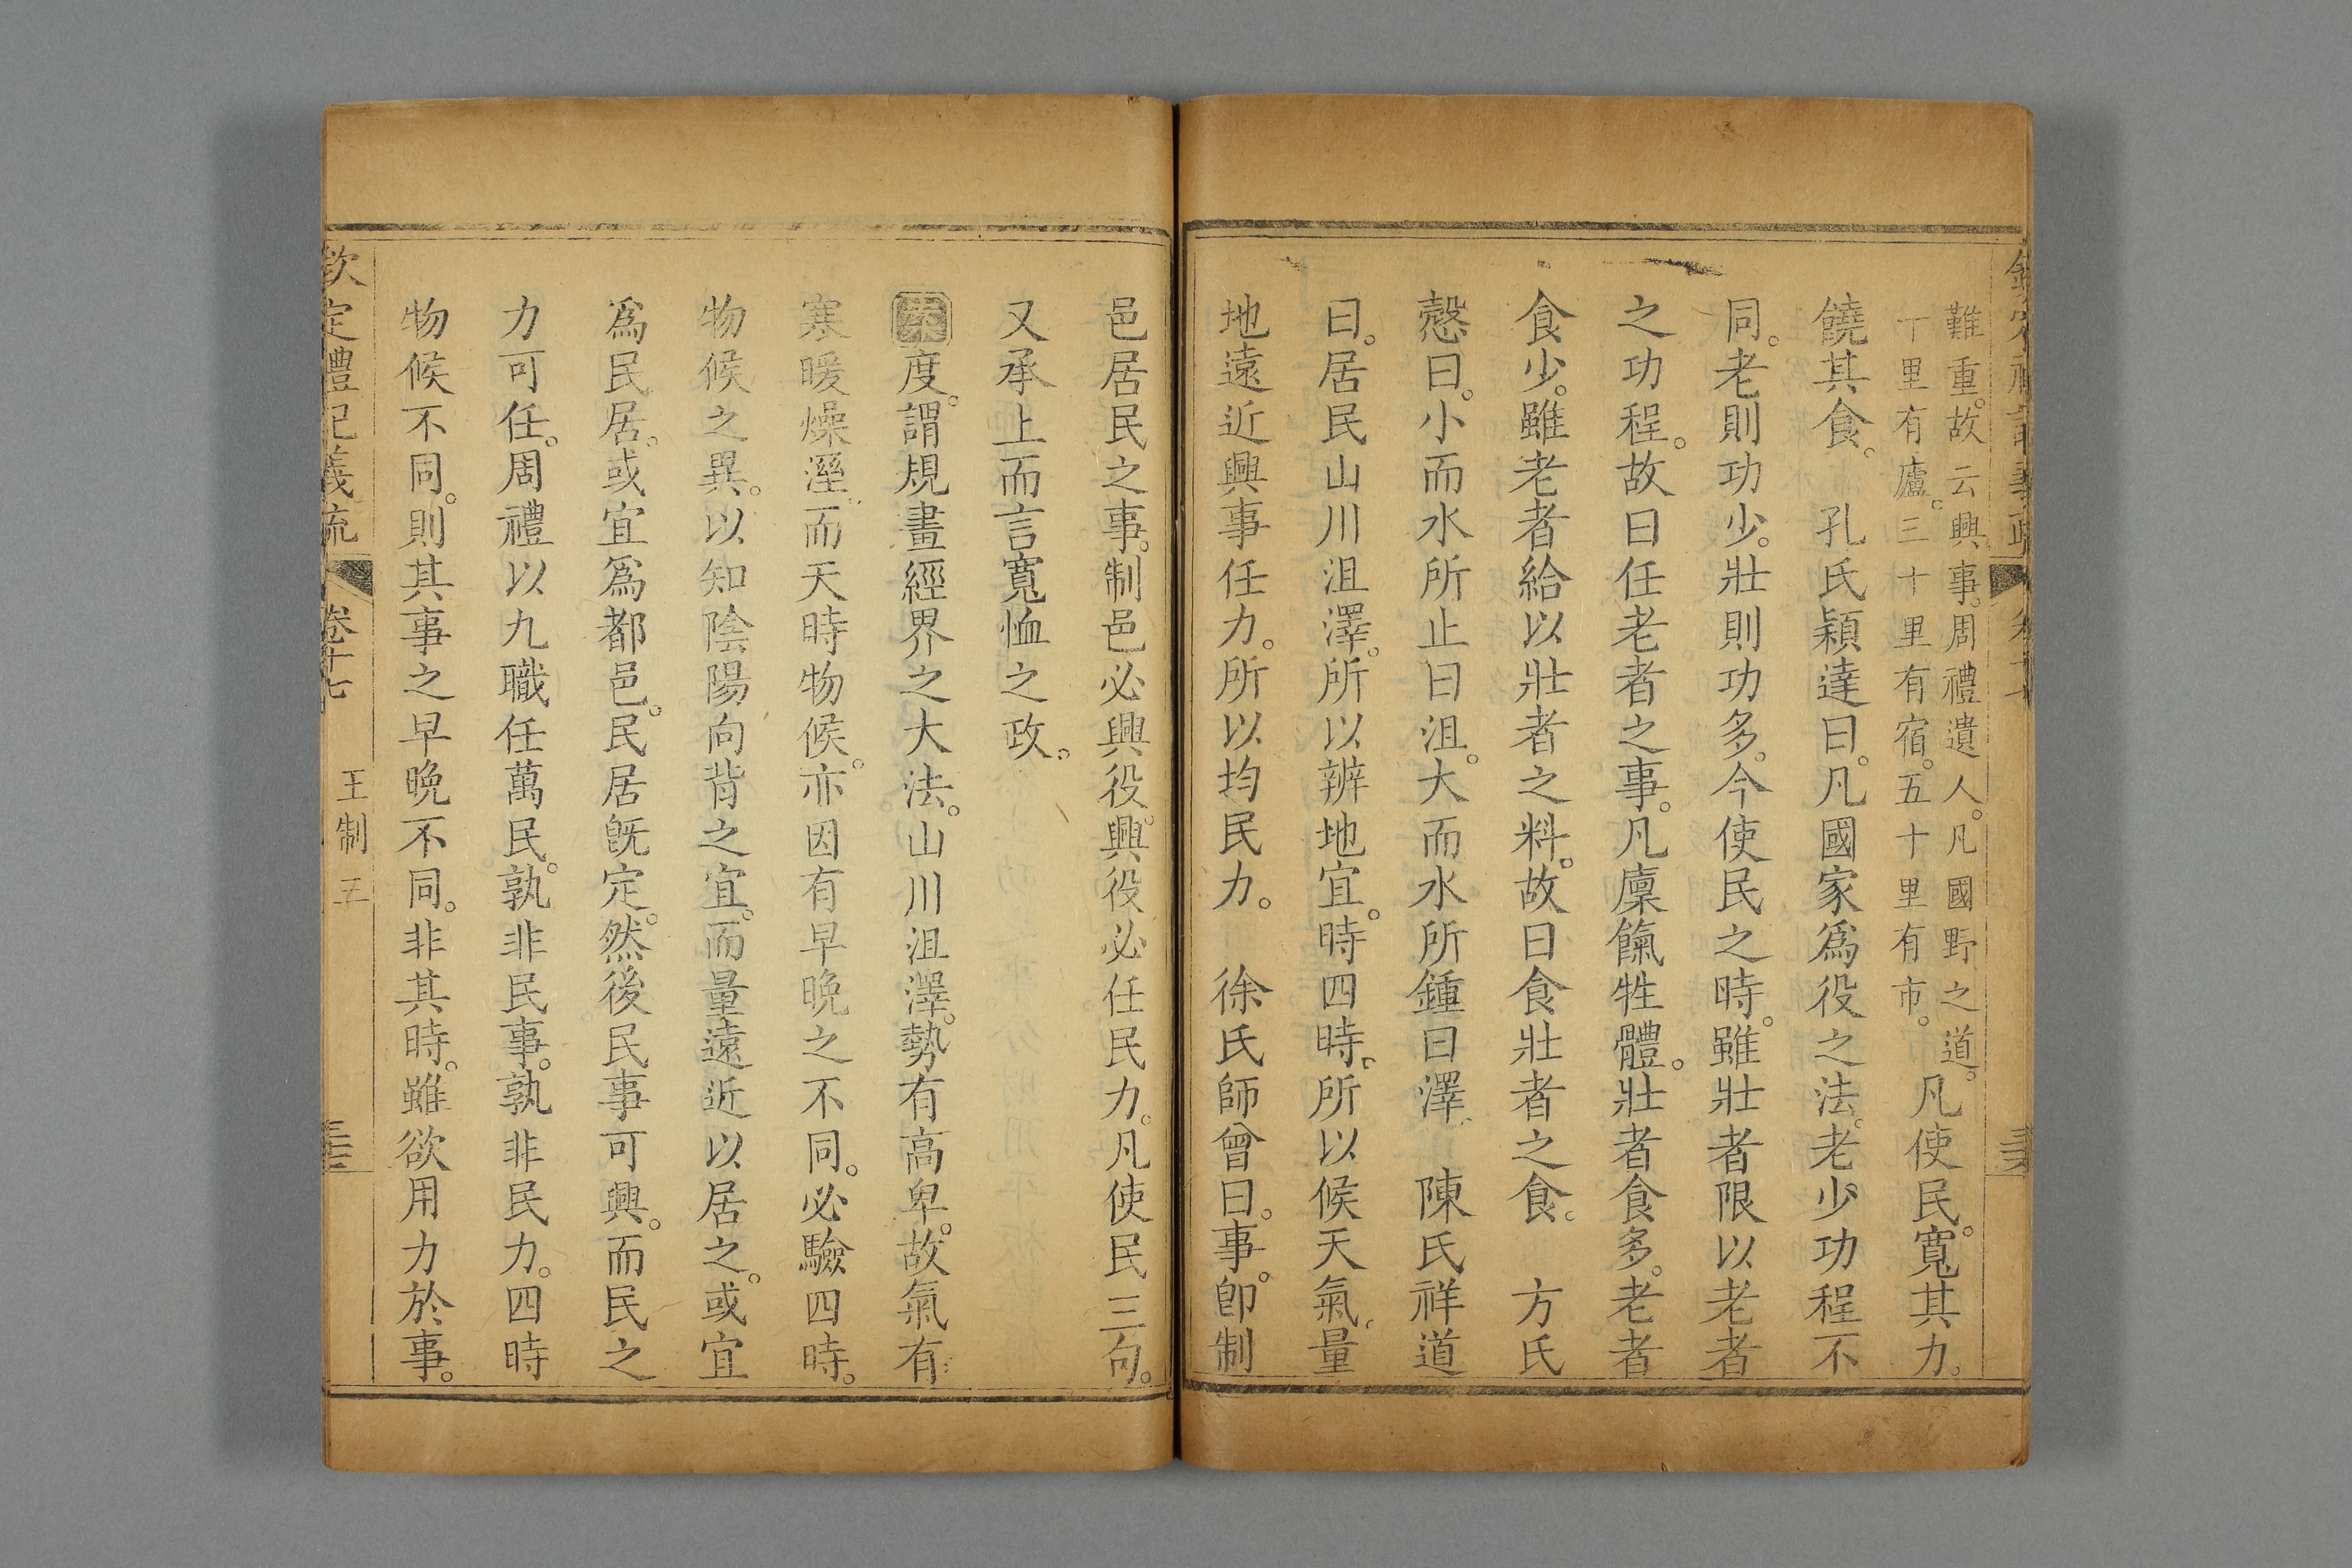 難重。故云興事。周禮遺人。凡國野之道。
十里有廬。三十里有宿。五十里有市。
凡使民。寬其力。
饒其食。　孔氏穎達曰。凡國家爲役之法。老少功程不
同。老則功少。壯則功多。今使民之時。雖壯者限以老者
之功程。故曰任老者之事。凡廩餼牲體。壯者食多。老者
食少。雖老者給以壯者之料。故曰食壯者之食。　方氏
慤曰。小而水所止曰沮。大而水所鍾曰澤。　陳氏祥道
曰。居民山川沮澤。所以辨地宜。時四時。所以候天氣。量
地遠近興事任力。所以均民力。　徐氏師曾曰。事。卽制
邑居民之事。制邑必興役。興役必任民力。凡使民三句。
又承上而言寬恤之政。
案度。謂規畫經界之大法。山川沮澤。勢有高卑。故氣有
寒暖燥溼。而天時物候。亦因有早晚之不同。必驗四時。
物候之異。以知陰陽向背之宜。而量遠近以居之。或宜
爲民居。或宜爲都邑。民居旣定。然後民事可興。而民之
力可任。周禮以九職任萬民。孰非民事。孰非民力。四時
物候不同。則其事之早晚不同。非其時。雖欲用力於事。
欽定禮記義疏　卷十七　王制　五